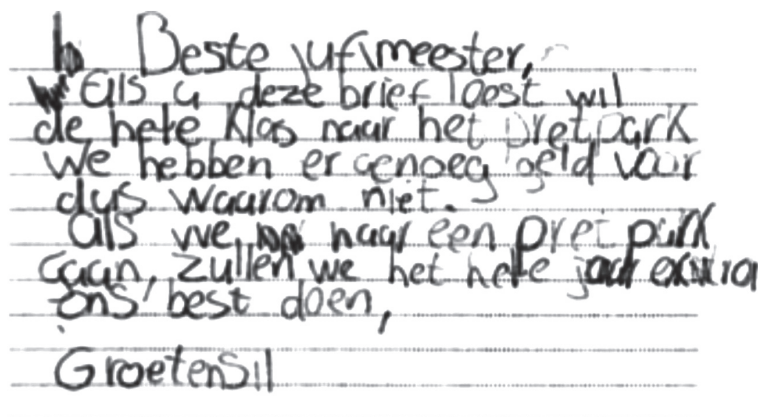 Beste juf\meester,
als u deze brief loest wil
de hele klas naar het pretpark
we hebben er genoeg geld voor
dus waarom niet.
als we naar een pretpark
gaan, zullen we het hele jaar extra
ons best doen,
Groeten Sil